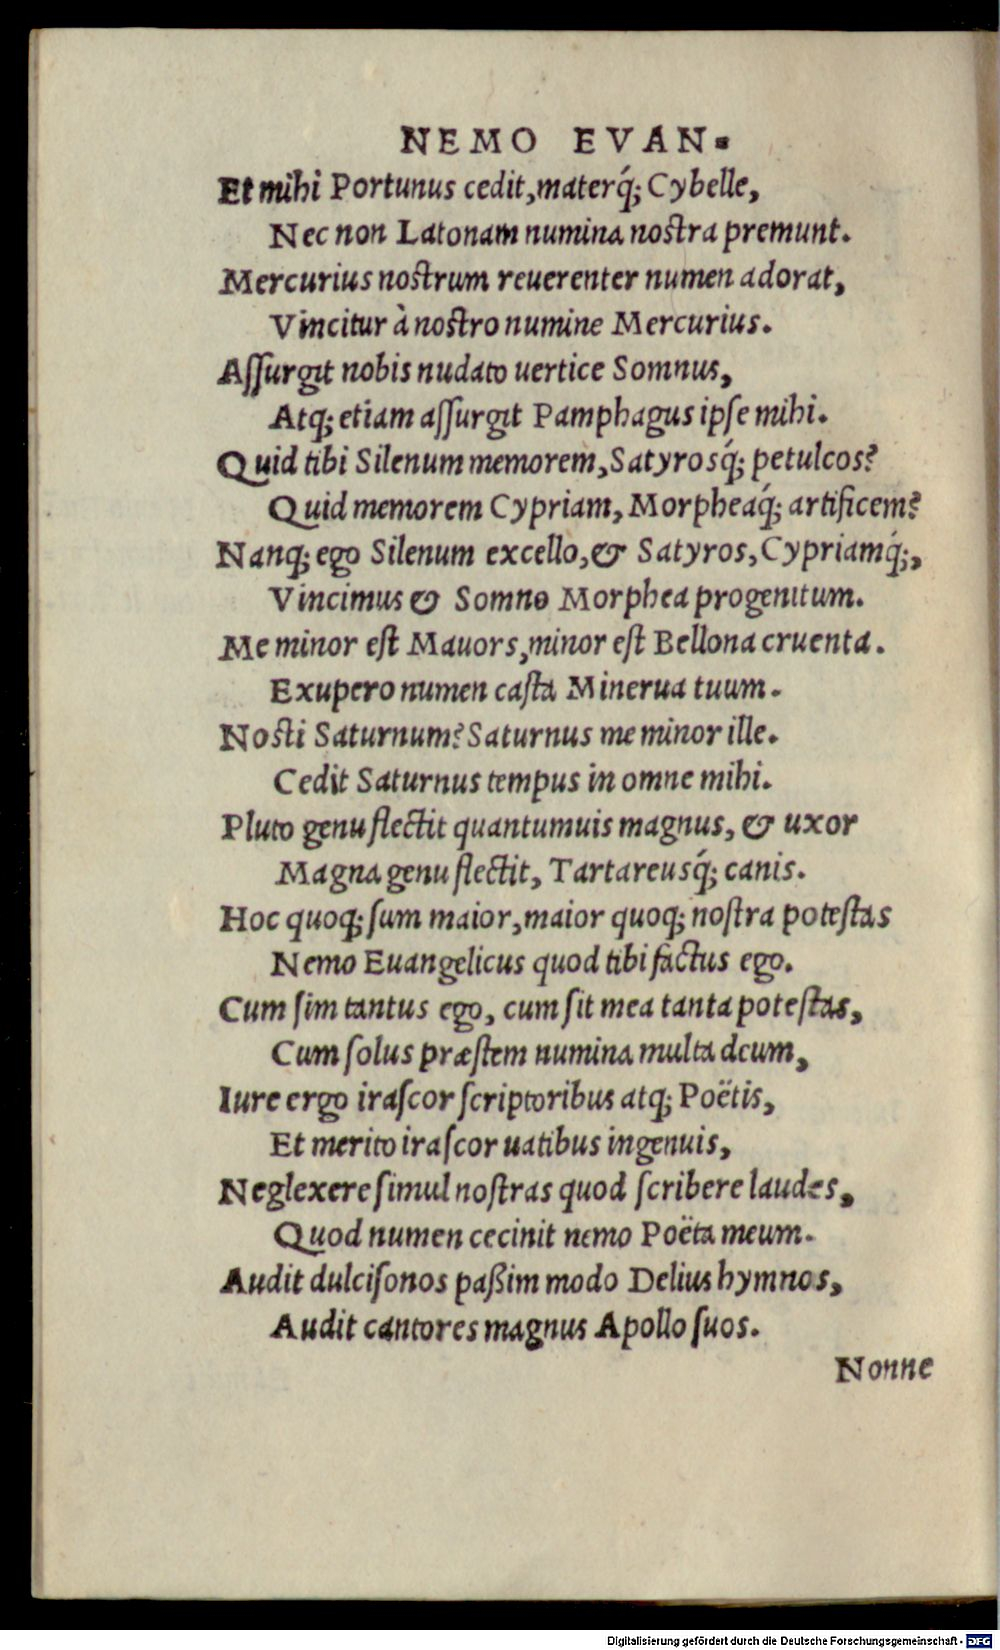 NEMO EVAN-
Et mihi Portunus cedit, materq́; Cybelle,
Nec non Latonam numina noſtra premunt.
Mercurius noſtrum reuerenter numen adorat,
Vincitur à noſtro numine Mercurius.
Aſſurgit nobis nudato uertice Somnus,
Atq; etiam aſſurgit Pamphagus ipſe mihi.
Quid tibi Silenum memorem, Satyrosq́; petulcos?
Quid memorem Cypriam, Morpheaq́; artificem?
Nanq; ego Silenum excello, & Satyros, Cypriamq́;,
Vincimus & Somno Morphea progenitum.
Me minor eſt Mauors, minor eſt Bellona cruenta.
Exupero numen caſta Minerua tuum.
Nosti Saturnum? Saturnus me minor ille.
Cedit Saturnus tempus in omne mihi.
Pluto genu flectit quantumuis magnus, & uxor
Magna genu flectit, Tartareusq́; canis.
Hoc quoq; ſum maior, maior quoq; noſtra poteſtas
Nemo Euangelicus quod tibi factus ego.
Cum ſim tantus ego, cum ſit mea tanta poteſtas,
Cum ſolus præſtem numina multa deum,
Iure ergo iraſcor ſcriptoribus atq; Poëtis,
Et merito iraſcor uatibus ingenuis,
Neglexere simul noſtras quod ſcribere laudes,
Quod numen cecinit nemo Poëta meum.
Audit dulciſonos paßim modo Delius hymnos,
Audit cantores magnus Apollo ſuos.
Nonne
Digitalisierung gefördert durch die Deutsche Forschungsgemeinschaft - DFG